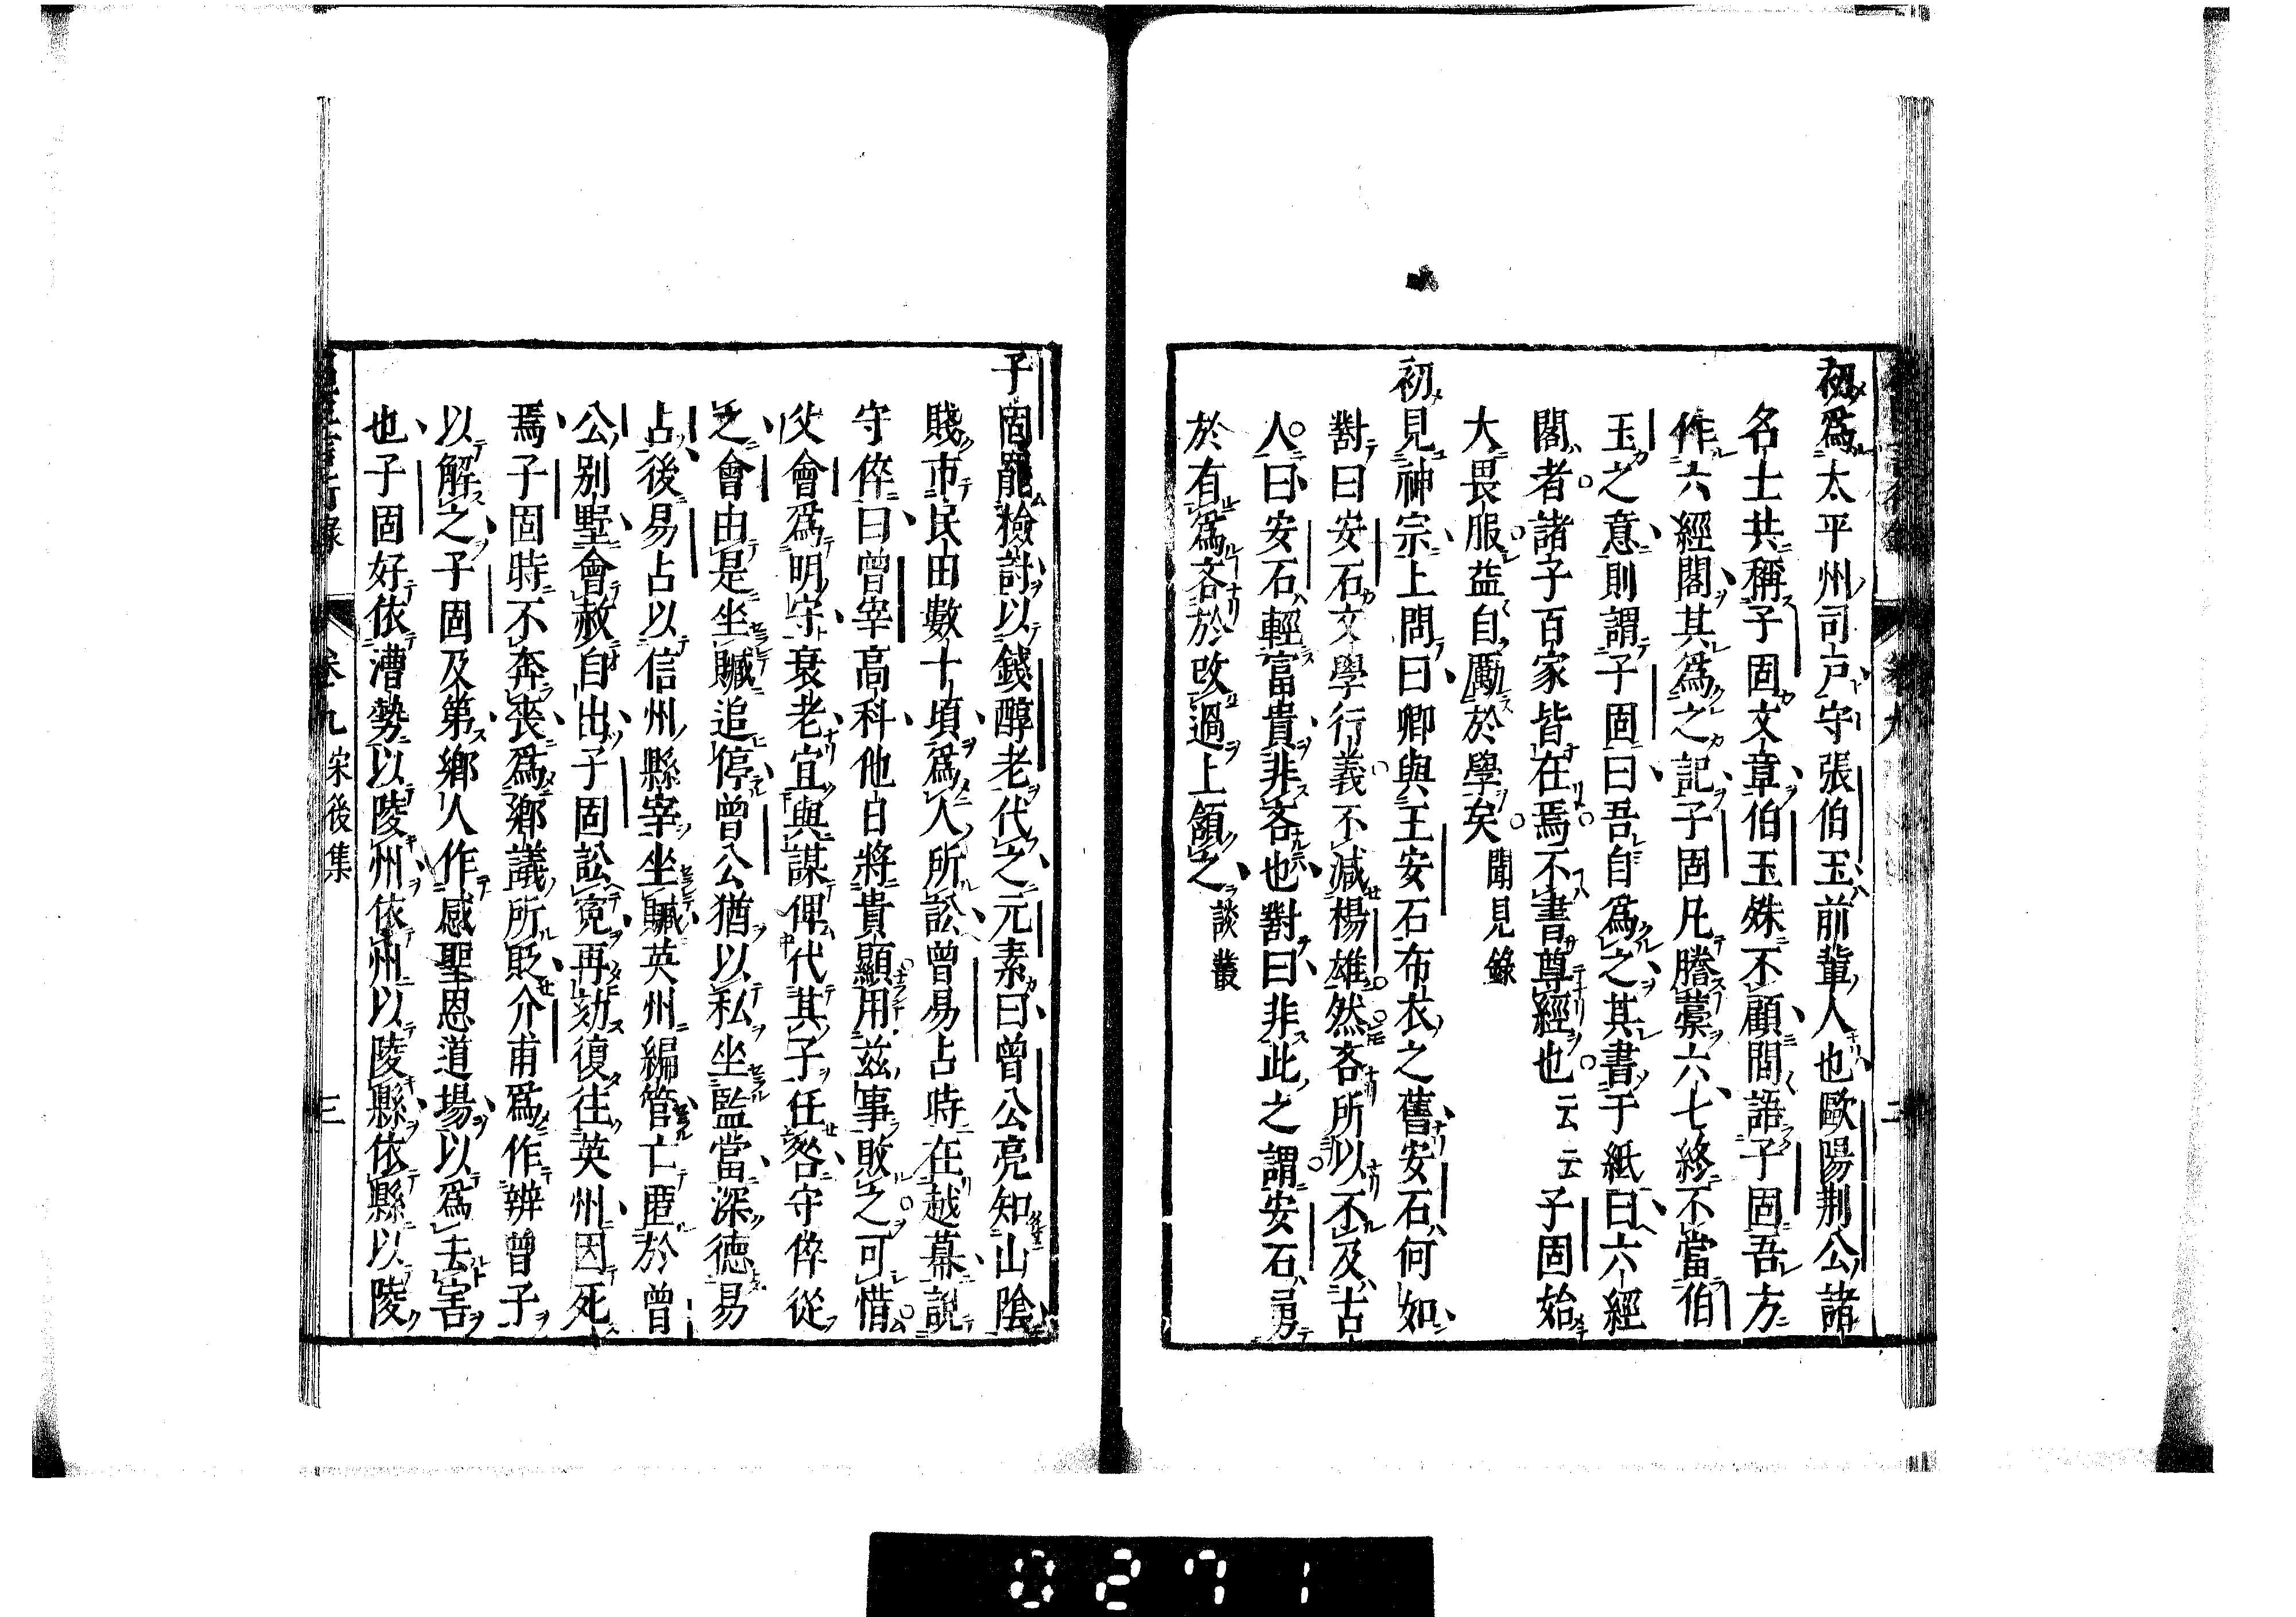 初爲太平州司戸守張伯玉前輩人也歐陽荆公諸
名士共稱子固文章伯玉殊不顧間語子固吾方
作六經閣其爲之記子固凡謄藁六七終不當伯
玉之意則謂子固曰吾自爲之其書于紙曰六經
閣者諸子百家皆在焉不書尊經也云云子固始
大畏服益自勵於學矣 聞見錄
初見神宗上問曰卿與王安石布衣之舊安石何如
對曰安石文學行義不減楊雄然吝所以不及古
人曰安石輕富貴非吝也對曰非此之謂安石勇
於有爲吝於改過上頷之 談叢
卷九 二
子固罷檢討以錢醇老代之元素曰曾公亮知山陰
賤市民田數十頃爲人所訟曾易占時在越幕説
守倅曰曾宰高科他日將貴顯用茲事敗之可惜
父會爲明守衰老宜與謀俾代其子任咎守倅從
之會由是坐贓追停曾公猶以私坐監當深德易
占後易占以信州縣宰坐贓英州編管亡匿於曾
公别墅會赦自出子固訟寃再劾復往英州因死
焉子固時不奔喪爲鄉議所貶介甫爲作辨曾子
以解之子固及第鄉人作感聖恩道場以爲去害
也子固好依漕勢以陵州依州以陵縣依縣以陵
言行錄 卷九 宋後集 三
0271